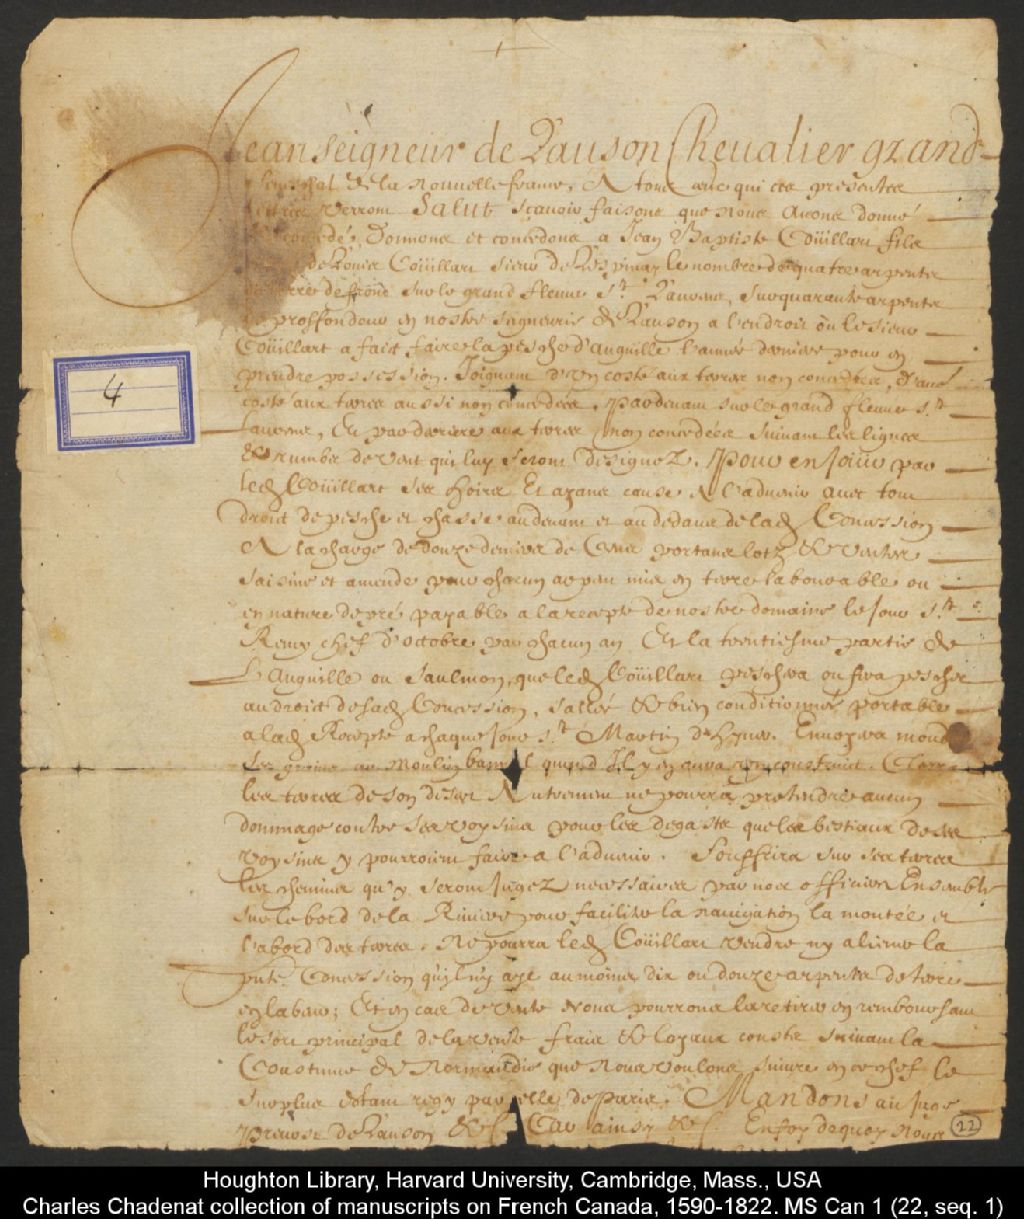 Jean seigneur de Lauson Chevalier grand
Seneschal de la nouvelle france, A tous ceux qui ces presentes
lettres verront Salut sçavoir faisons que nous avons donné
concedé, Donnons et concedons a Jean Baptiste Coüillart fils
de Louis Coüillart sieur de Lespinay le nombre de quatre arpents
de terre de front sur le grand fleuve st Laurens, sur quarante arpents
de proffondeur en nostre seigneurie de Lauson a l'endroit où le sieur
Coüillart a fait faire la pesche d'anguille l'année derniere pour en
prendre possession. Joignant d'un costé aux terres non concedées, d'autre
costé aux terres aussi non concedées, pardevant sur le grand fleuve st
Laurens, Et par derriere aux terres non concedées suivant les lignes
& rumbs de vent qui luy seront designez. Pour en joüir par
led Coüillart ses hoirs Et ayans cause A l'advenir avec tout
droict de pesche et chasse au devant et au dedans de lad Concession
A la charge de douze deniers de Cens portans lotz & ventes
saisine et amende pour chacun arpent mis en terre labourable ou
en nature de pré payable a la recepte de nostre domaine le jour st
Remy chef d'octobre par chacun an Et la trentiesme partie de
L'Anguille ou Saulmon, que led Coüillart peschera ou fera pescher
au droict de sad Concession, sallée & bien conditionnée portable
a lad Recepte a chaque jour st Martin d'Hyver. Envoyera moudre
ses grains au moulin banal quand Il y en aura un construict.
les terres de son desert Autrement ne pourra pretendre aucun
dommage contre ses voysins pour les degasts que les bestiaux de ses
voysins y pourroient faire a l'advenir. Souffrira sur ses terres
les chemins qu'y seront jugez necessaires par nos officiers Ensemble
sur le bord de la Riviere pour faciliter la navigation la montée et
l'abord des terres. Ne pourra led Coüillart vendre ny aliener la
pnte Concession qu'il n'y aye au moins dix ou douze arpents de terre
en labour; Et en cas de vente Nous pourrons la retirer en remboursant
le sort principal de la vente frais & loyaux cousts suivant la
Coustume de Normandie que nous voulons suivre en ce chef le
surplus estant regy par celle de Paris. Mandons au juge
Prevost de Lauson &c Car ainsy &c. En foy dequoy nous
4
22
Houghton Library, Harvard University, Cambridge, Mass., USA
Charles Chadenat collection of manuscripts on French Canada, 1590-1822. MS Can 1 (22, seq. 1)